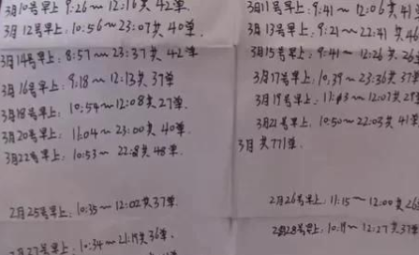 3月10号早上:9:26~12:16共42单
3月12号早上:10:56~23:07共40单.
3月14号早上:8:57~23:37共42单
3月16号早上:9:18~12:13共37单
3月18号早上:10:54~12:08共27单.
3月20号早上:11:04~23:00共40单.
3月22号早上:10:53~22:28共48单.
2月25号早上:10:35~12:02共37单.
2月27号早上:10:34~21:19共36单.
3月11号早上:9:41~12:06共41
3月13号早上:9:21~22:41共46
3月15号早上:9:41~12:26共26
3月17号早上:10:39~23:36共37单
3月19号早上:11:43~12:07共27
3月21号早上:10:50~22:03共41单
3月共771单.
2月26号早上:11:15~12:00共26
2月28号早上:10:11~12:27共37单